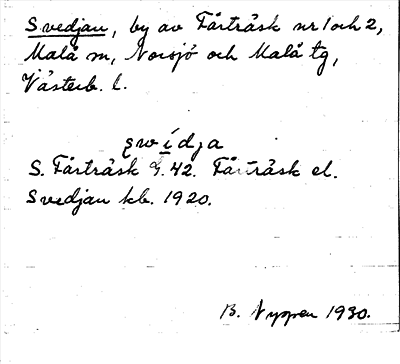 Svedjan, by av Fårträsk nr 1 och 2,
Malå sn, Norsjö och Malå tg,
Västerb. l.
svídja
S. Fårträsk G. 42. Fårträsk el.
Svedjan kb. 1920.
B. Nyman 1930.